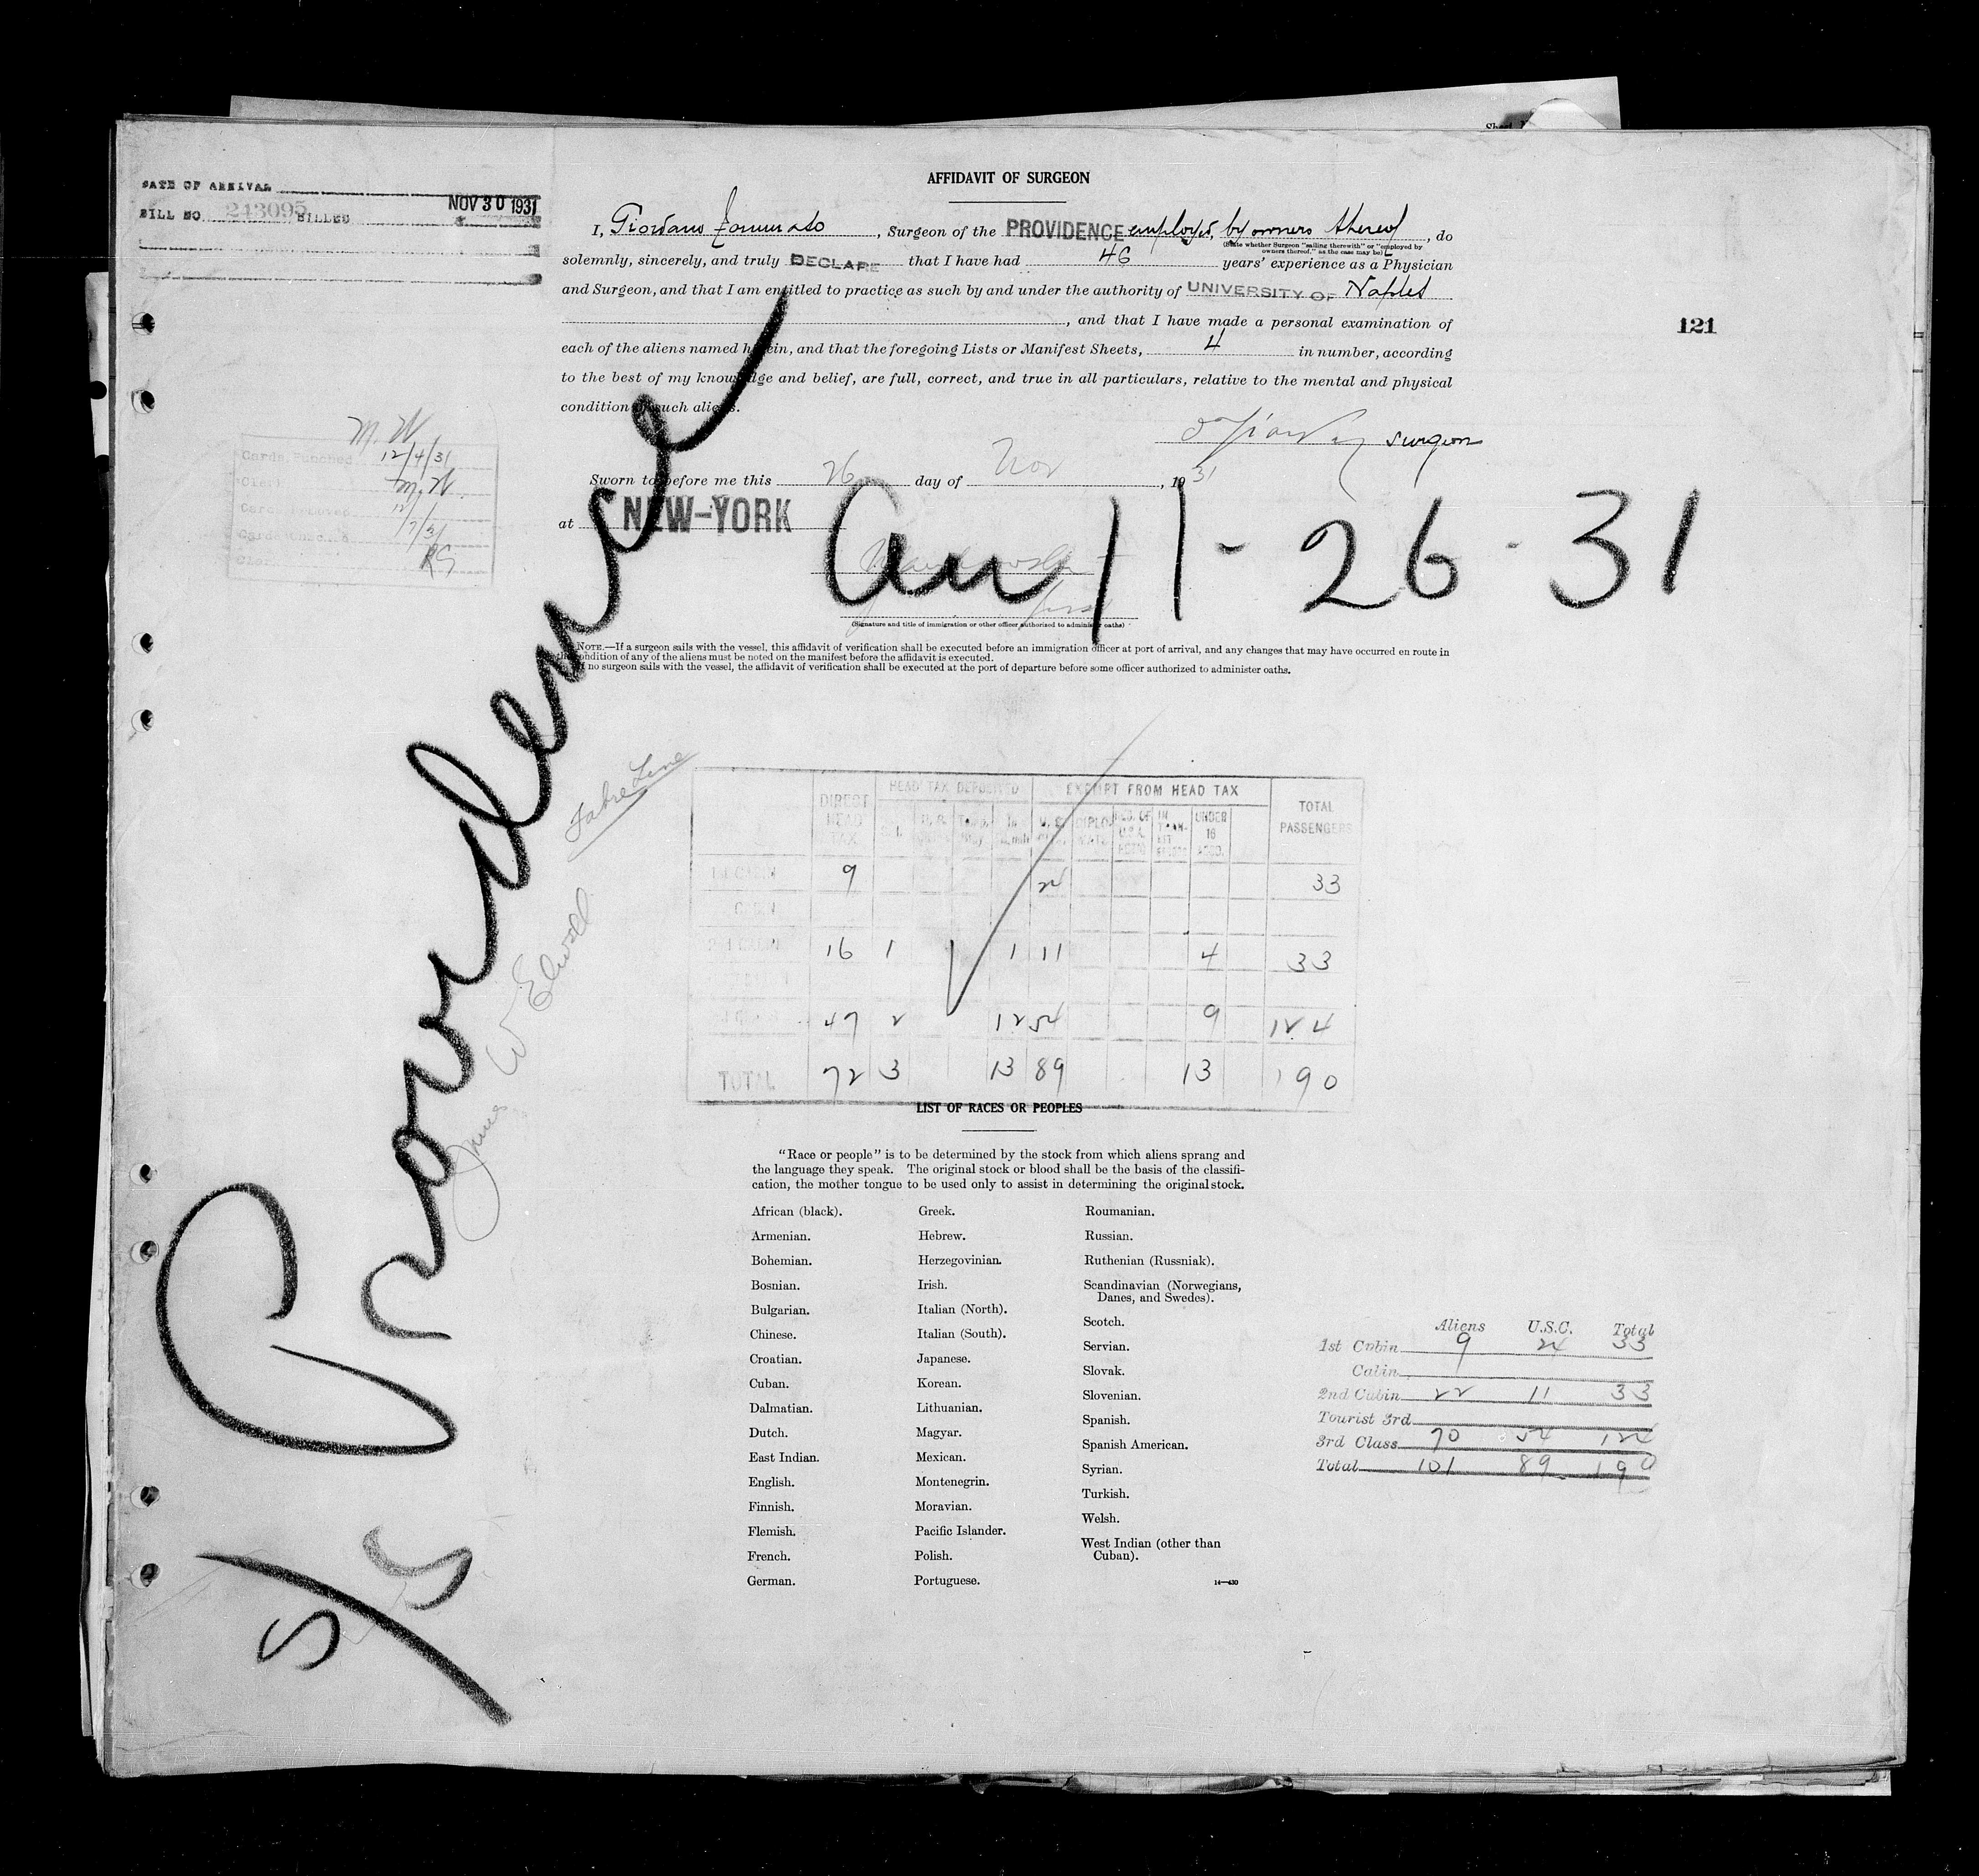 DATE OF ARRIVAL
BILL NO. 243095 BILLED NOV 30 1931
AFFIDAVIT OF SURGEON
I, Giordano, Surgeon of the PROVIDENCE employed, by owners thereof, do
(State whether Surgeon "sailing therewith" or "employed by
owners thereof," as the case may be)
solemnly, sincerely, and truly DECLARE that I have had 46 years' experience as a Physician
and Surgeon, and that I am entitled to practice as such by and under the authority of UNIVERSITY OF Naples
, and that I have made a personal examination of
each of the aliens named herein, and that the foregoing Lists or Manifest Sheets, 4 in number, according
to the best of my knowledge and belief, are full, correct, and true in all particulars, relative to the mental and physical
condition of such aliens.
121
surgeon
Sworn to before me this 26 day of Nov, 1931
at NEW-YORK
M. W
Cards Punched 12/4/31
Clerk M. W.
12/7/31
Cards Checked
Clerk RG
Arr 11-26-31
(Signature and title of immigration or other officer authorized to administer oaths)
NOTE.—If a surgeon sails with the vessel, this affidavit of verification shall be executed before an immigration officer at port of arrival, and any changes that may have occurred en route in
the condition of any of the aliens must be noted on the manifest before the affidavit is executed.
If no surgeon sails with the vessel, the affidavit of verification shall be executed at the port of departure before some officer authorized to administer oaths.
S/S Providence
Fabre Line
James W Elwell
DIRECT HEAD TAX HEAD TAX DEPOSITED EXEMPT FROM HEAD TAX TOTAL PASSENGERS
S. I. U. S. DIPLO- IN TRAN- UNDER 16
1st CABIN 9 24 33
CABIN
2nd CABIN 16 1 1 11 4 33
47 2 12 54 9 124
TOTAL 72 3 13 89 13 190
LIST OF RACES OR PEOPLES
"Race or people" is to be determined by the stock from which aliens sprang and
the language they speak. The original stock or blood shall be the basis of the classifi-
cation, the mother tongue to be used only to assist in determining the original stock.
African (black).
Armenian.
Bohemian.
Bosnian.
Bulgarian.
Chinese.
Croatian.
Cuban.
Dalmatian.
Dutch.
East Indian.
English.
Finnish.
Flemish.
French.
German.
Greek.
Hebrew.
Herzegovinian.
Irish.
Italian (North).
Italian (South).
Japanese.
Korean.
Lithuanian.
Magyar.
Mexican.
Montenegrin.
Moravian.
Pacific Islander.
Polish.
Portuguese.
Roumanian.
Russian.
Ruthenian (Russniak).
Scandinavian (Norwegians,
Danes, and Swedes).
Scotch.
Servian.
Slovak.
Slovenian.
Spanish.
Spanish American.
Syrian.
Turkish.
Welsh.
West Indian (other than
Cuban).
14—430
Aliens U.S.C. Total
1st Cabin 9 24 33
Cabin
2nd Cabin 22 11 33
Tourist 3rd
3rd Class 70 54 124
Total 101 89 190